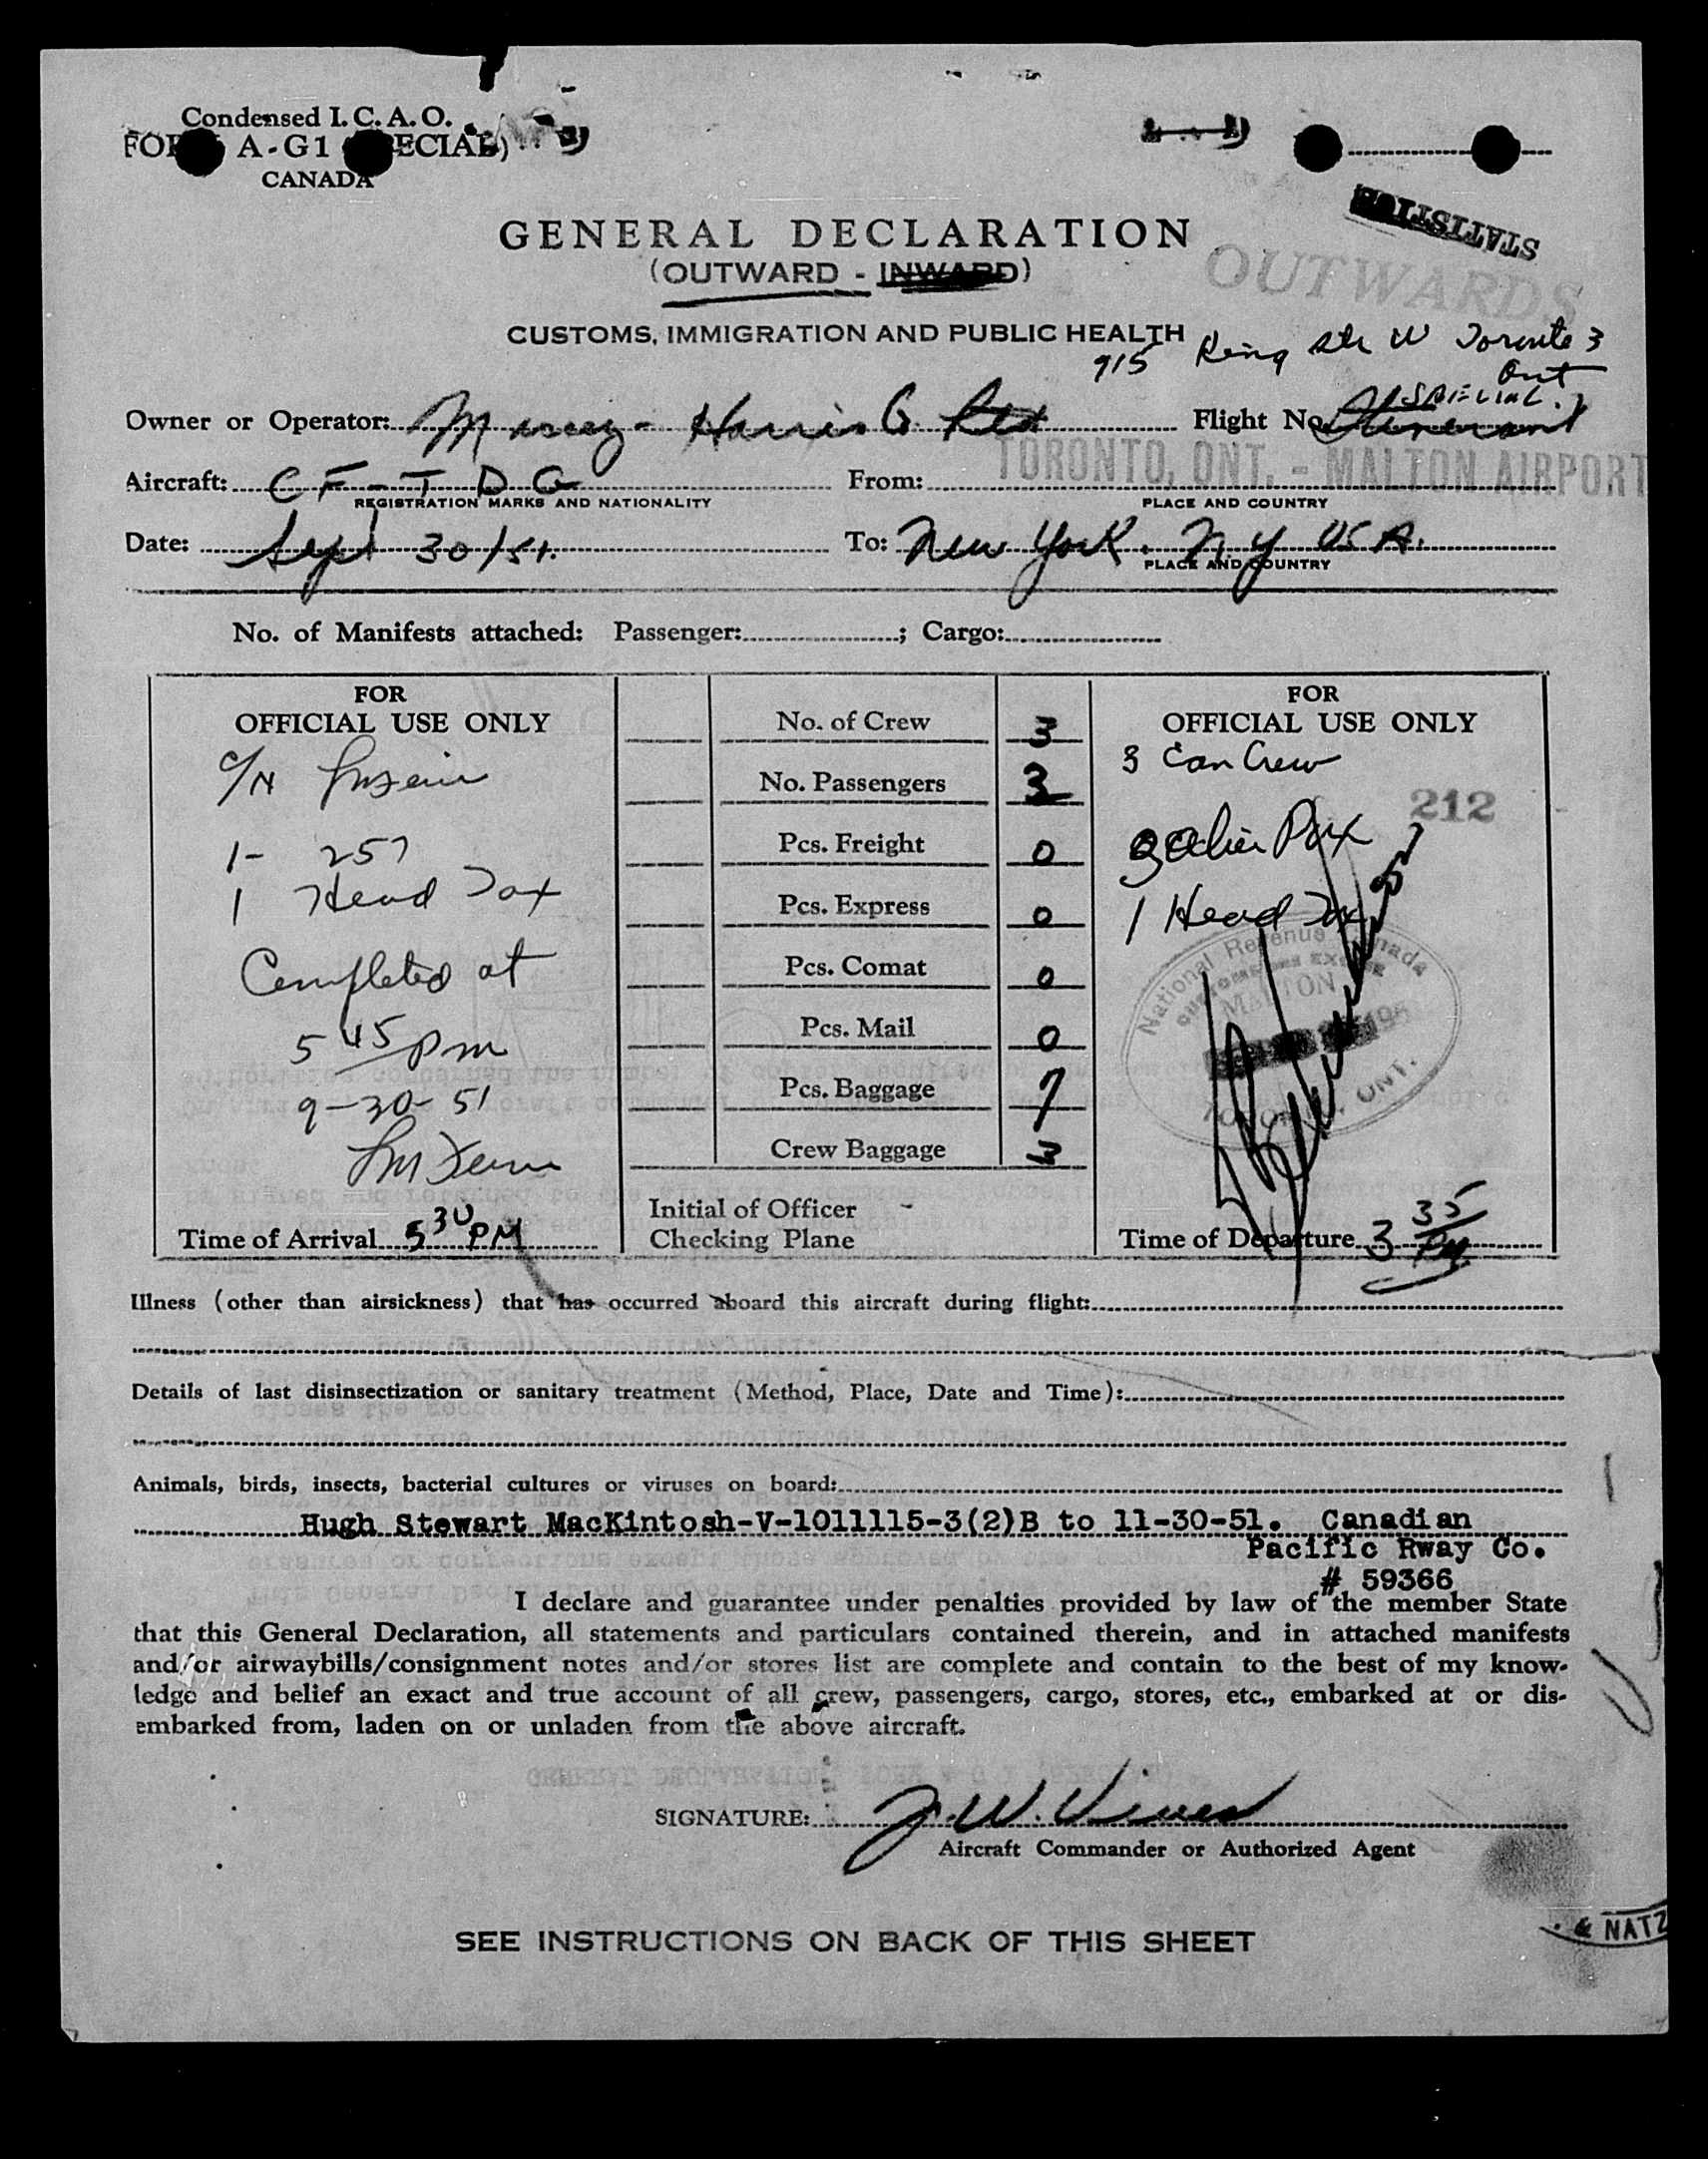 Condensed I.C.A.O.
A-G1
CANADA
GENERAL DECLARATION
(OUTWARD - INWARD)
STATISTICS
OUTWARDS
CUSTOMS, IMMIGRATION AND PUBLIC HEALTH
915 King Str W Toronto 3
Ont
SPECIAL
Owner or Operator: Massey-Harris Co Ltd Flight No. Itinerant
Aircraft: CF-TDG From: TORONTO, ONT. - MALTON AIRPORT
REGISTRATION MARKS AND NATIONALITY PLACE AND COUNTRY
Date: Sept 30/51. To: New York. N.Y USA.
PLACE AND COUNTRY
No. of Manifests attached: Passenger: ; Cargo:
FOR
OFFICIAL USE ONLY
1- 257
1 Head Tax
Completed at
5 45 pm
9-30-51
Time of Arrival 5 30 PM
No. of Crew 3
No. Passengers 3
Pcs. Freight 0
Pcs. Express 0
Pcs. Comat 0
Pcs. Mail 0
Pcs. Baggage 7
Crew Baggage 3
Initial of Officer
Checking Plane
FOR
OFFICIAL USE ONLY
3 Can Crew
212
3 Alien Pax
1 Head Tax
National Revenue Canada
CUSTOMS EXCISE
MALTON
TORONTO, ONT.
Time of Departure 3 35 PM
Illness (other than airsickness) that has occurred aboard this aircraft during flight:
Details of last disinsectization or sanitary treatment (Method, Place, Date and Time):
Animals, birds, insects, bacterial cultures or viruses on board:
Hugh Stewart MacKintosh-V-1011115-3(2)B to 11-30-51. Canadian
Pacific Rway Co.
# 59366
I declare and guarantee under penalties provided by law of the member State
that this General Declaration, all statements and particulars contained therein, and in attached manifests
and/or airwaybills/consignment notes and/or stores list are complete and contain to the best of my know-
ledge and belief an exact and true account of all crew, passengers, cargo, stores, etc., embarked at or dis-
embarked from, laden on or unladen from the above aircraft.
SIGNATURE: J.W. Vines
Aircraft Commander or Authorized Agent
& NATZ
SEE INSTRUCTIONS ON BACK OF THIS SHEET